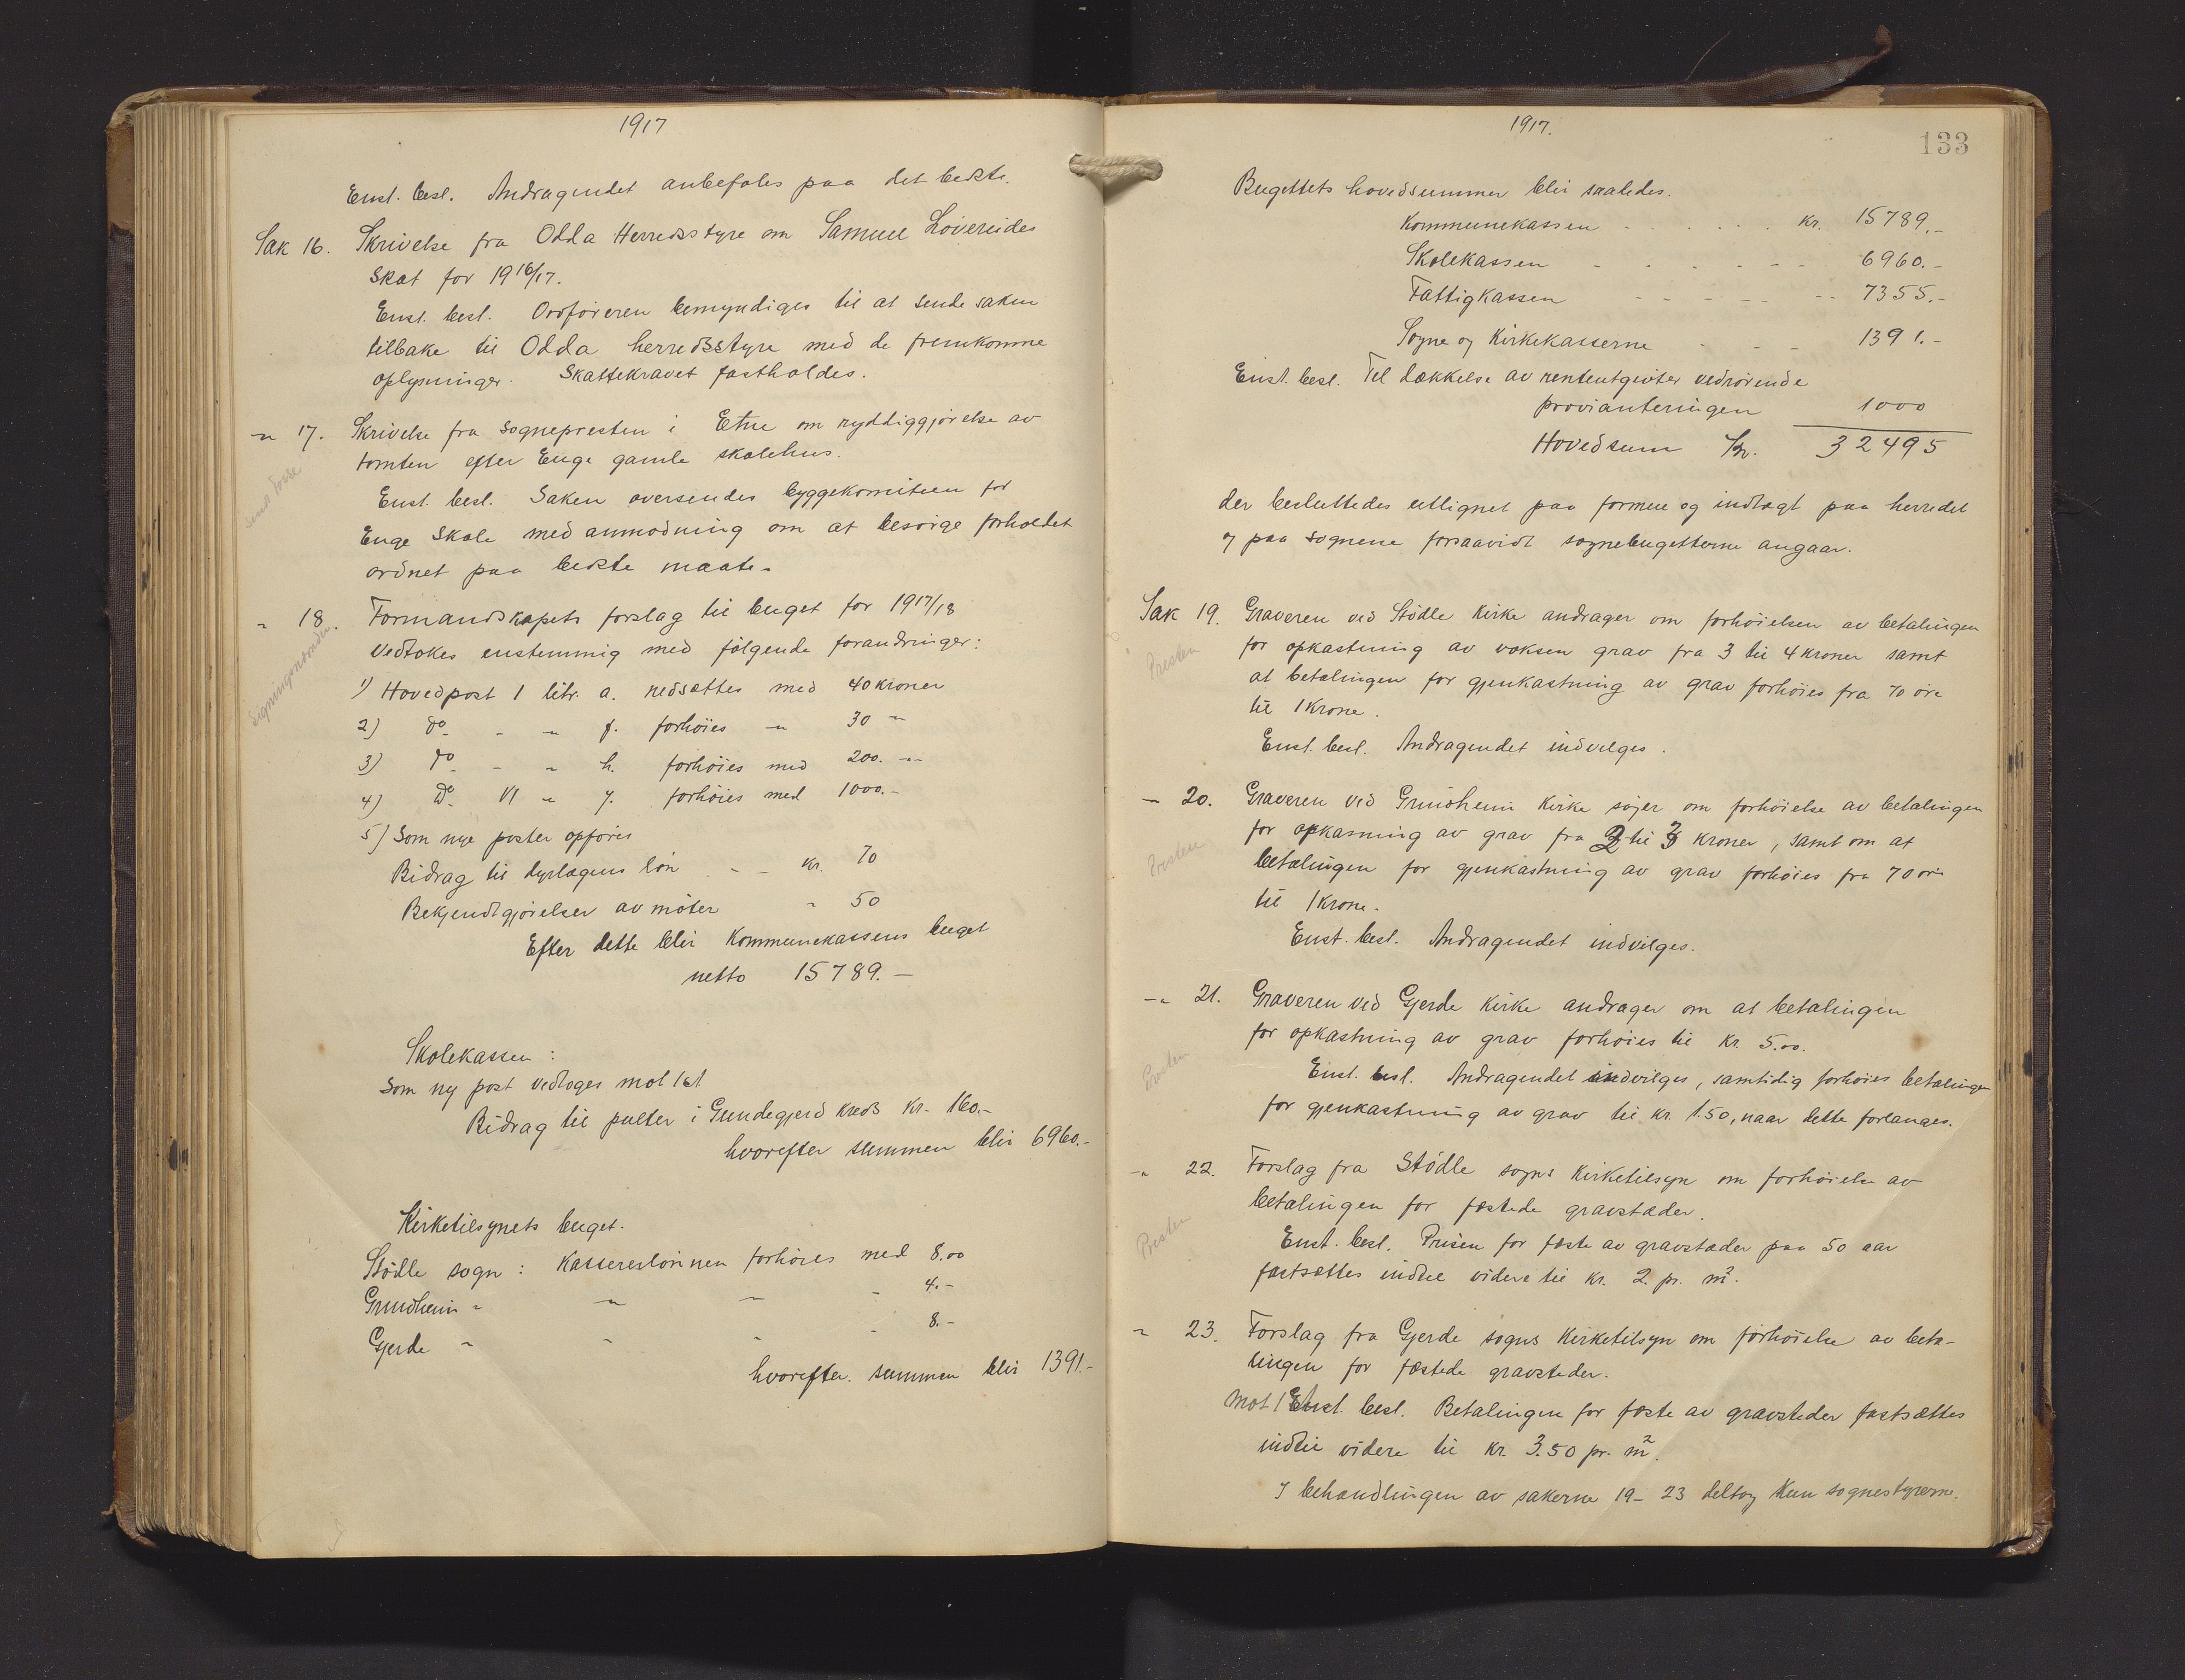 1917
Enst. besl. Andragendet anbefales paa det bedste.
Sak 16. Skrivelse fra Odda Herredsstyre om Samuel Løvereides
Skat for 1916/17.
Enst. besl. Ordføreren bemyndiges til at sende saken
tilbake til Odda herredsstyre med de fremkomne
oplysninger. Skattekravet fastholdes.
-"- 17. Skrivelse fra sognepresten i Etne om ryddiggjørelse av
tomten efter Enge gamle skolehus.
Enst. besl. Saken oversendes byggekomiteen for
Enge Skole med anmodning om at besørge forholdet
ordnet paa bedste maate.
" 18. Formandskapets forslag til buget for 1917/18
vedtokes enstemmig med følgende forandringer:
1) Hovedpost 1 litr. a. nedsættes med 40 kroner
2) do - " f. forhøies " 30 "
3) do - " h. forhøies med 200. -"-
4) do VI " y. forhøies med 1000.-
5) Som nye poster opføres
Bidrag til dyrlægens løn - - kr. 70
Bekjendtgjørelser av møter " 50
Efter dette blir Kommunekassens buget
netto 15789.-
Skolekassen:
Som ny post vedtoges mot 1 st
Bidrag til pulter i Gundegjerd kreds kr. 160.-
hvorefter summen blir 6960.-
Kirketilsynets buget.
Stødle sogn: Kassererlønnen forhøies med 8.00
Grindheim " " " " 4.-
Gjerde " " " " 8.-
hvorefter summen blir 1391.-
1917.
133
Bugettets hovedsummer blir saaledes.
Kommunekassen . . . . . . kr. 15789.-
Skolekassen - - - - - - 6960.-
Fattigkassen - - - - - - 7355.-
Sogne og Kirkekasserne - - - 1391.-
Enst. besl. Til dækkelse av renteutgivter vedrørende
provianteringen 1000
Hovedsum Kr. 32495
der besluttedes utlignet paa formue og indtægt paa herredet
og paa sognene forsaavidt sognebugetterne angaar.
Sak 19. Graveren ved Stødle kirke andrager om forhøielsen av betalingen
Presten
for opkastning av voksen grav fra 3 til 4 kroner samt
at betalingen for gjenkastning av grav forhøies fra 70 øre
til 1 krone.
Enst. besl. Andragendet indvilges.
-"- 20. Graveren ved Grindheim Kirke søjer om forhøielse av betalingen
Presten
for opkasning av grav fra 2 til 3 kroner, samt om at
betalingen for gjenkastning av grav forhøies fra 70 øre
til 1 krone.
Enst. besl. Andragendet indvilges.
-"- 21. Graveren ved Gjerde Kirke andrager om at betalingen
for opkastning av grav forhøies til kr. 5.00.
Presten
Enst. besl. Andragendet indvilges, samtidig forhøies betalingen
for gjenkastning av grav til kr. 1.50, naar dette forlanges.
-"- 22. Forslag fra Stødle sogns Kirketilsyn om forhøielse av
betalingen for fæstede gravstæder.
Presten
Enst. besl. Prisen for fæste av gravstæder paa 50 aar
fastsættes indtil videre til kr. 2. pr. m².
" 23. Forslag fra Gjerde sogns Kirketilsyn om forhøielse av beta-
lingen for fæstede gravsteder.
Mot 1 st besl. Betalingen for fæste av gravsteder fastsættes
indtil videre til kr. 3.50 pr. m².
I behandlingen av sakerne 19-23 deltog kun sognestyrerne.